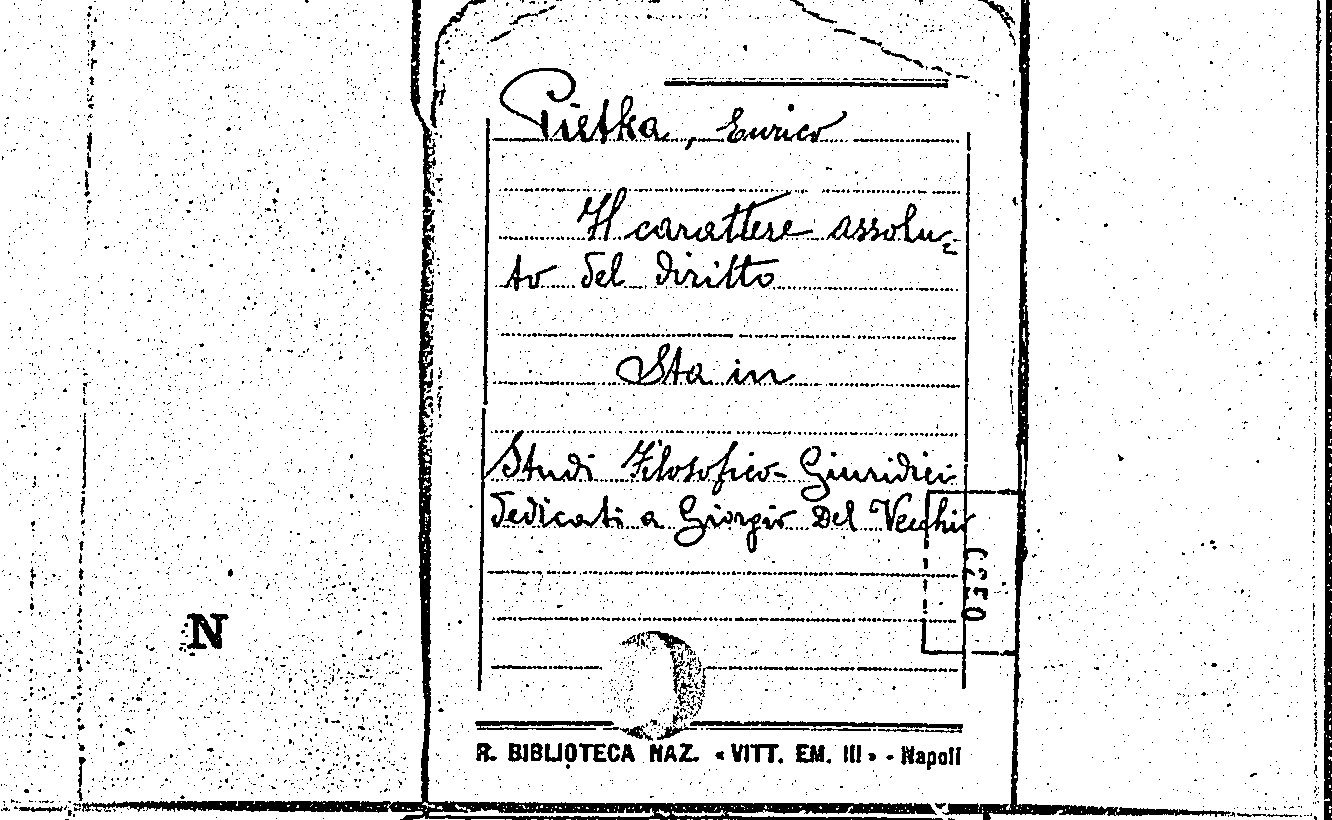 Pietka, Enrico
Il carattere assolu=
to del diritto
Sta in
Studi Filosofico-Giuridici
dedicati a Giorgio Del Vecchio
N
R. BIBLIOTECA NAZ. « VITT. EM. III » - Napoli